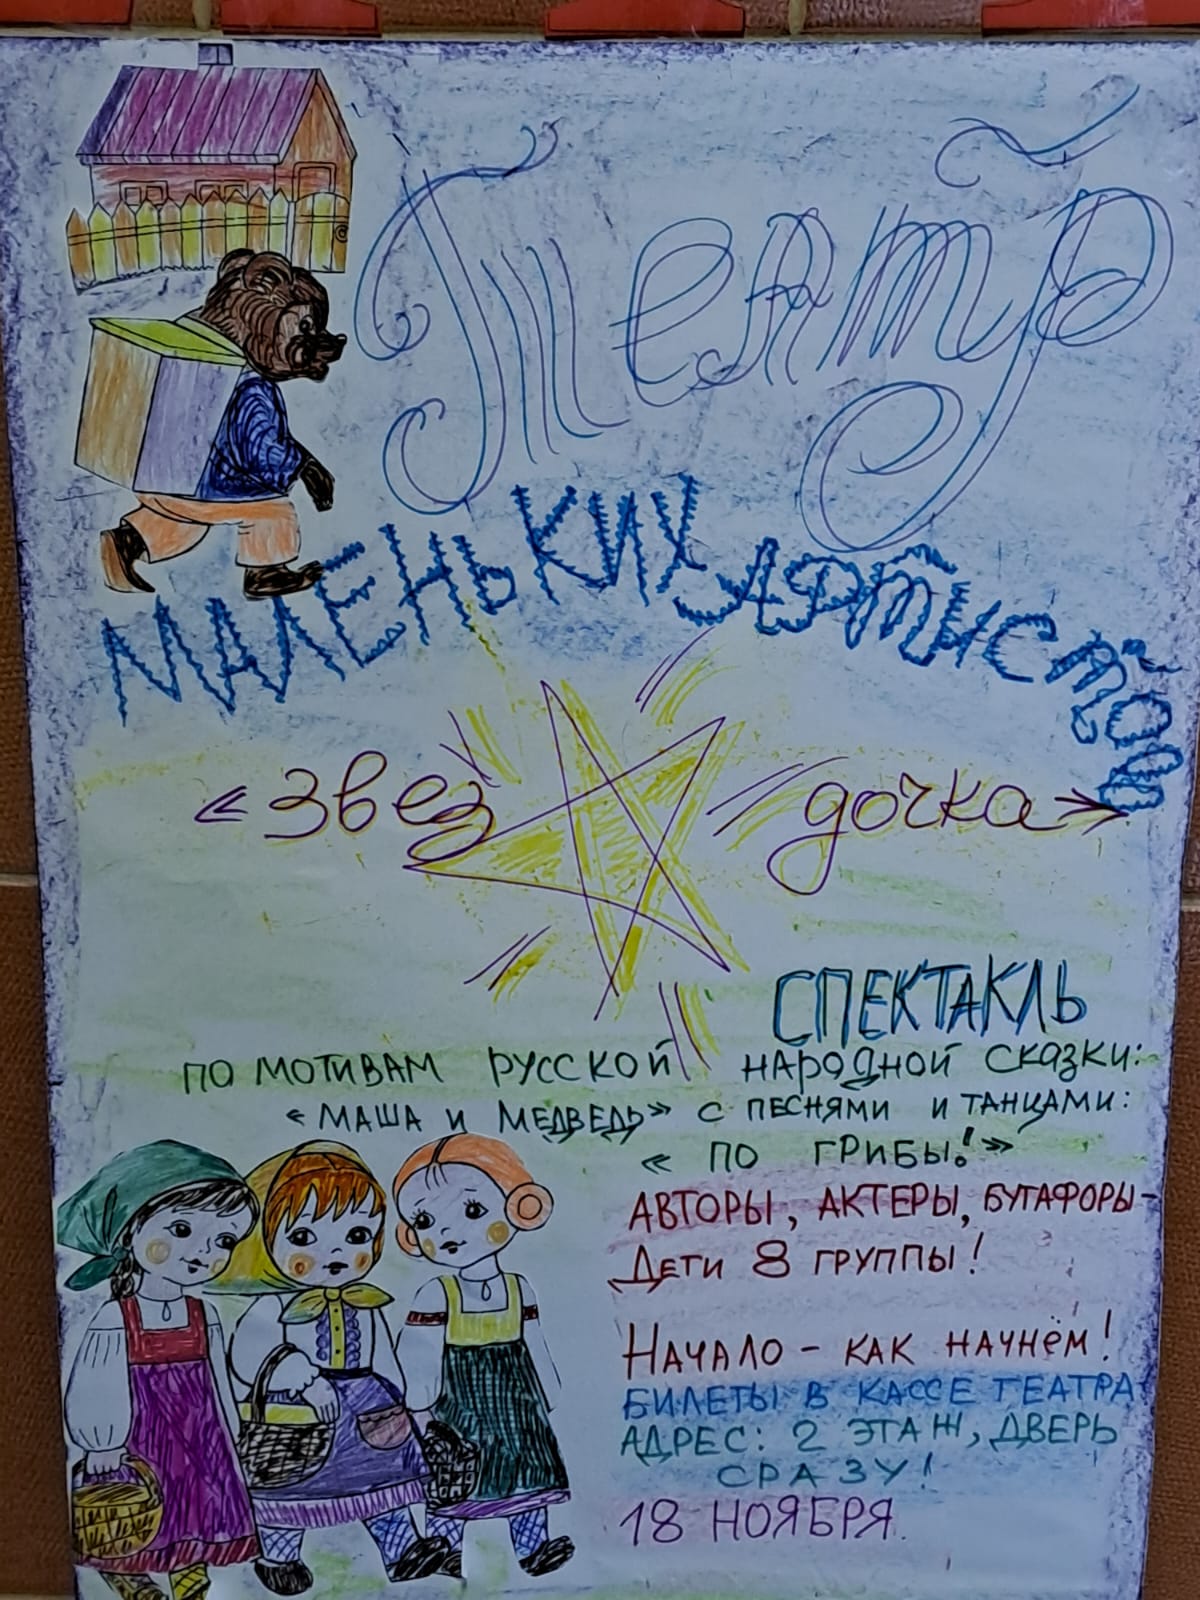 Театр
МАЛЕНЬКИХ АРТИСТОВ
«Звездочка»
СПЕКТАКЛЬ
ПО МОТИВАМ РУССКОЙ НАРОДНОЙ СКАЗКИ:
«МАША И МЕДВЕДЬ» С ПЕСНЯМИ И ТАНЦАМИ:
« ПО ГРИБЫ!»
АВТОРЫ, АКТЕРЫ, БУТАФОРЫ-
ДЕТИ 8 ГРУППЫ!
НАЧАЛО - КАК НАЧНЁМ!
БИЛЕТЫ В КАССЕ ТЕАТРА
АДРЕС: 2 ЭТАЖ, ДВЕРЬ
СРАЗУ!
18 НОЯБРЯ.